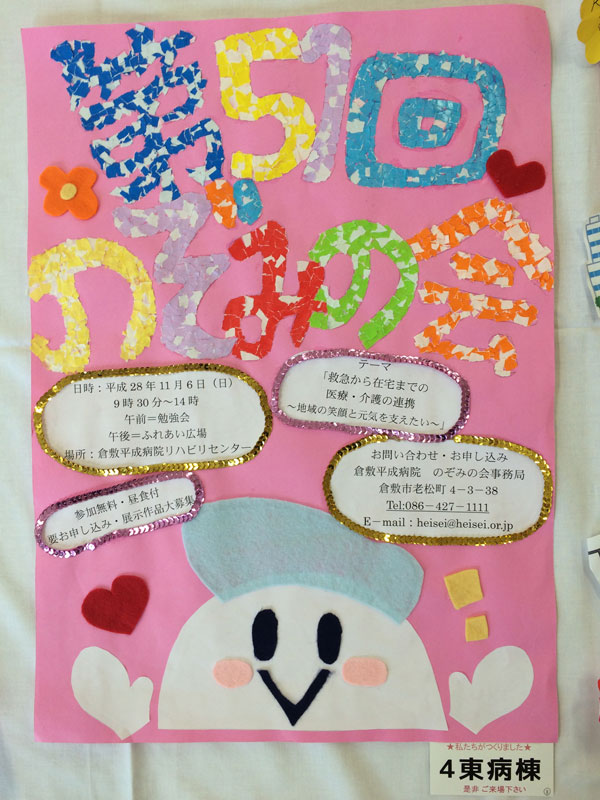 第51回
のぞみの会
日時：平成28年11月6日（日）
9時30分～14時
午前＝勉強会
午後＝ふれあい広場
場所：倉敷平成病院リハビリセンター
テーマ
「救急から在宅までの
医療・介護の連携
～地域の笑顔と元気を支えたい～」
お問い合わせ・お申し込み
倉敷平成病院　のぞみの会事務局
倉敷市老松町4－3－38
Tel:086－427－1111
E－mail：heisei@heisei.or.jp
参加無料・昼食付
要お申し込み・展示作品大募集
★私たちがつくりました★
4東病棟
是非 ご来場下さい